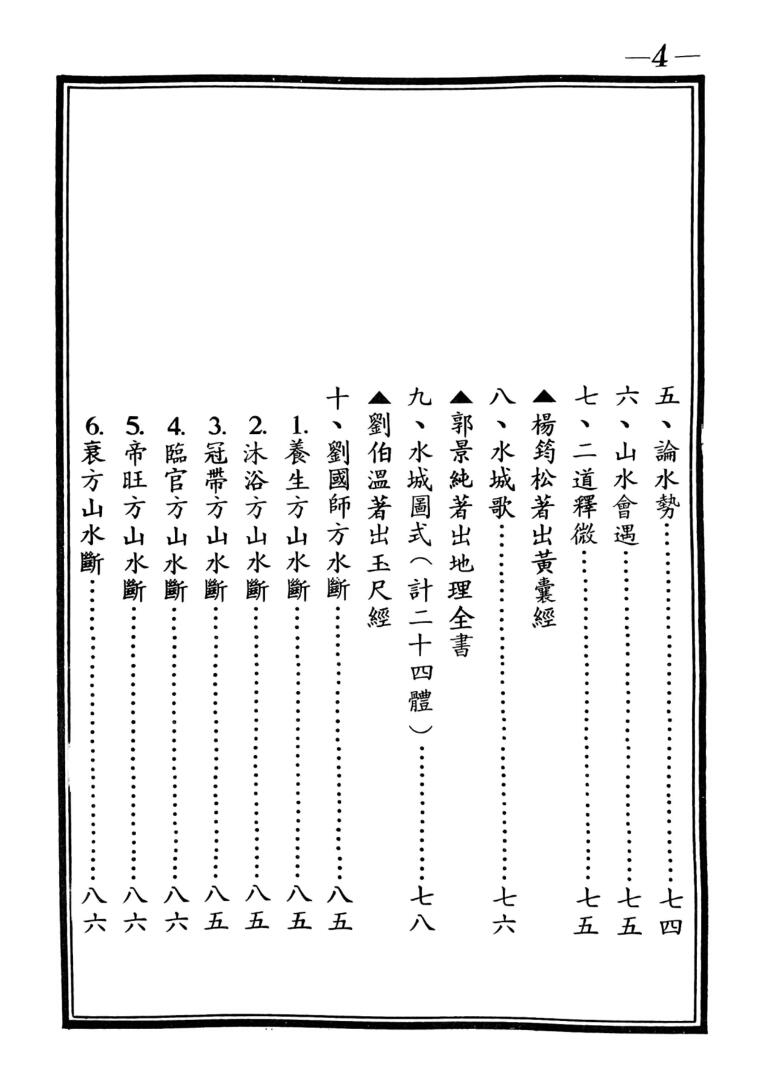 —4—
五、論水勢……………………………………七四
六、山水會遇…………………………………七五
七、二道釋微…………………………………七五
▲楊筠松著出黃囊經
八、水城歌……………………………………七六
▲郭景純著出地理全書
九、水城圖式（計二十四體）………………七八
▲劉伯溫著出玉尺經
十、劉國師方水斷……………………………八五
1.養生方山水斷………………………………八五
2.沐浴方山水斷………………………………八五
3.冠帶方山水斷………………………………八五
4.臨官方山水斷………………………………八六
5.帝旺方山水斷………………………………八六
6.衰方山水斷…………………………………八六